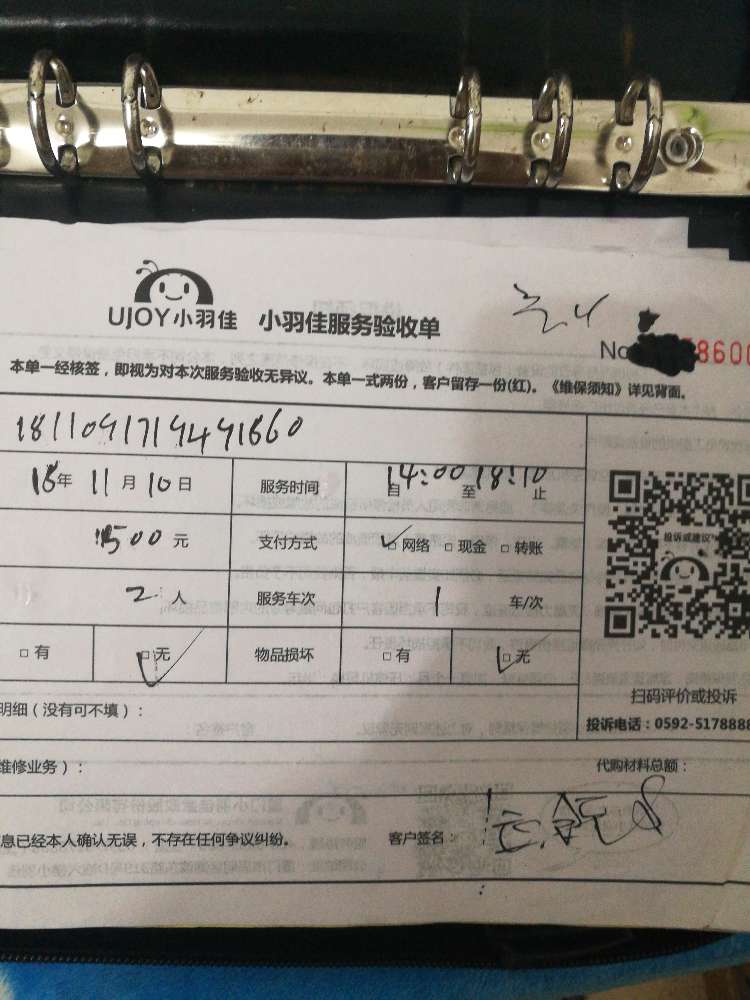 UJOY小羽佳 小羽佳服务验收单
No 8600
本单一经核签，即视为对本次服务验收无异议。本单一式两份，客户留存一份(红)。《维保须知》详见背面。
18年 11月 10日 服务时间 自 14:00 至 18:10 止
1500 元 支付方式 ☑网络 □现金 □转账
投诉或建议
2 人 服务车次 1 车/次
□有 ☑无 物品损坏 □有 ☑无
扫码评价或投诉
明细（没有可不填）：
投诉电话：0592-5178888
维修业务）： 代购材料总额：
息已经本人确认无误，不存在任何争议纠纷。 客户签名：